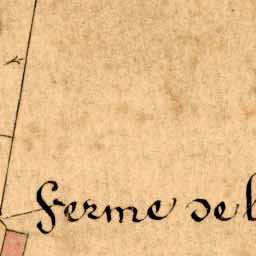 Ferme de l